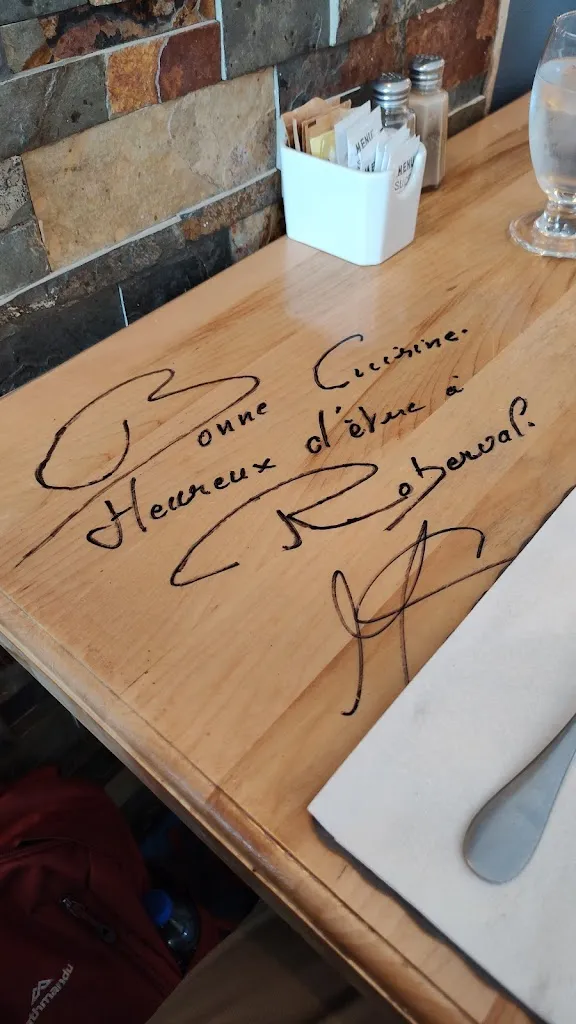 Bonne Cuisine.
Heureux d'être à
Roberval.
MENU
MENU
kathmandu